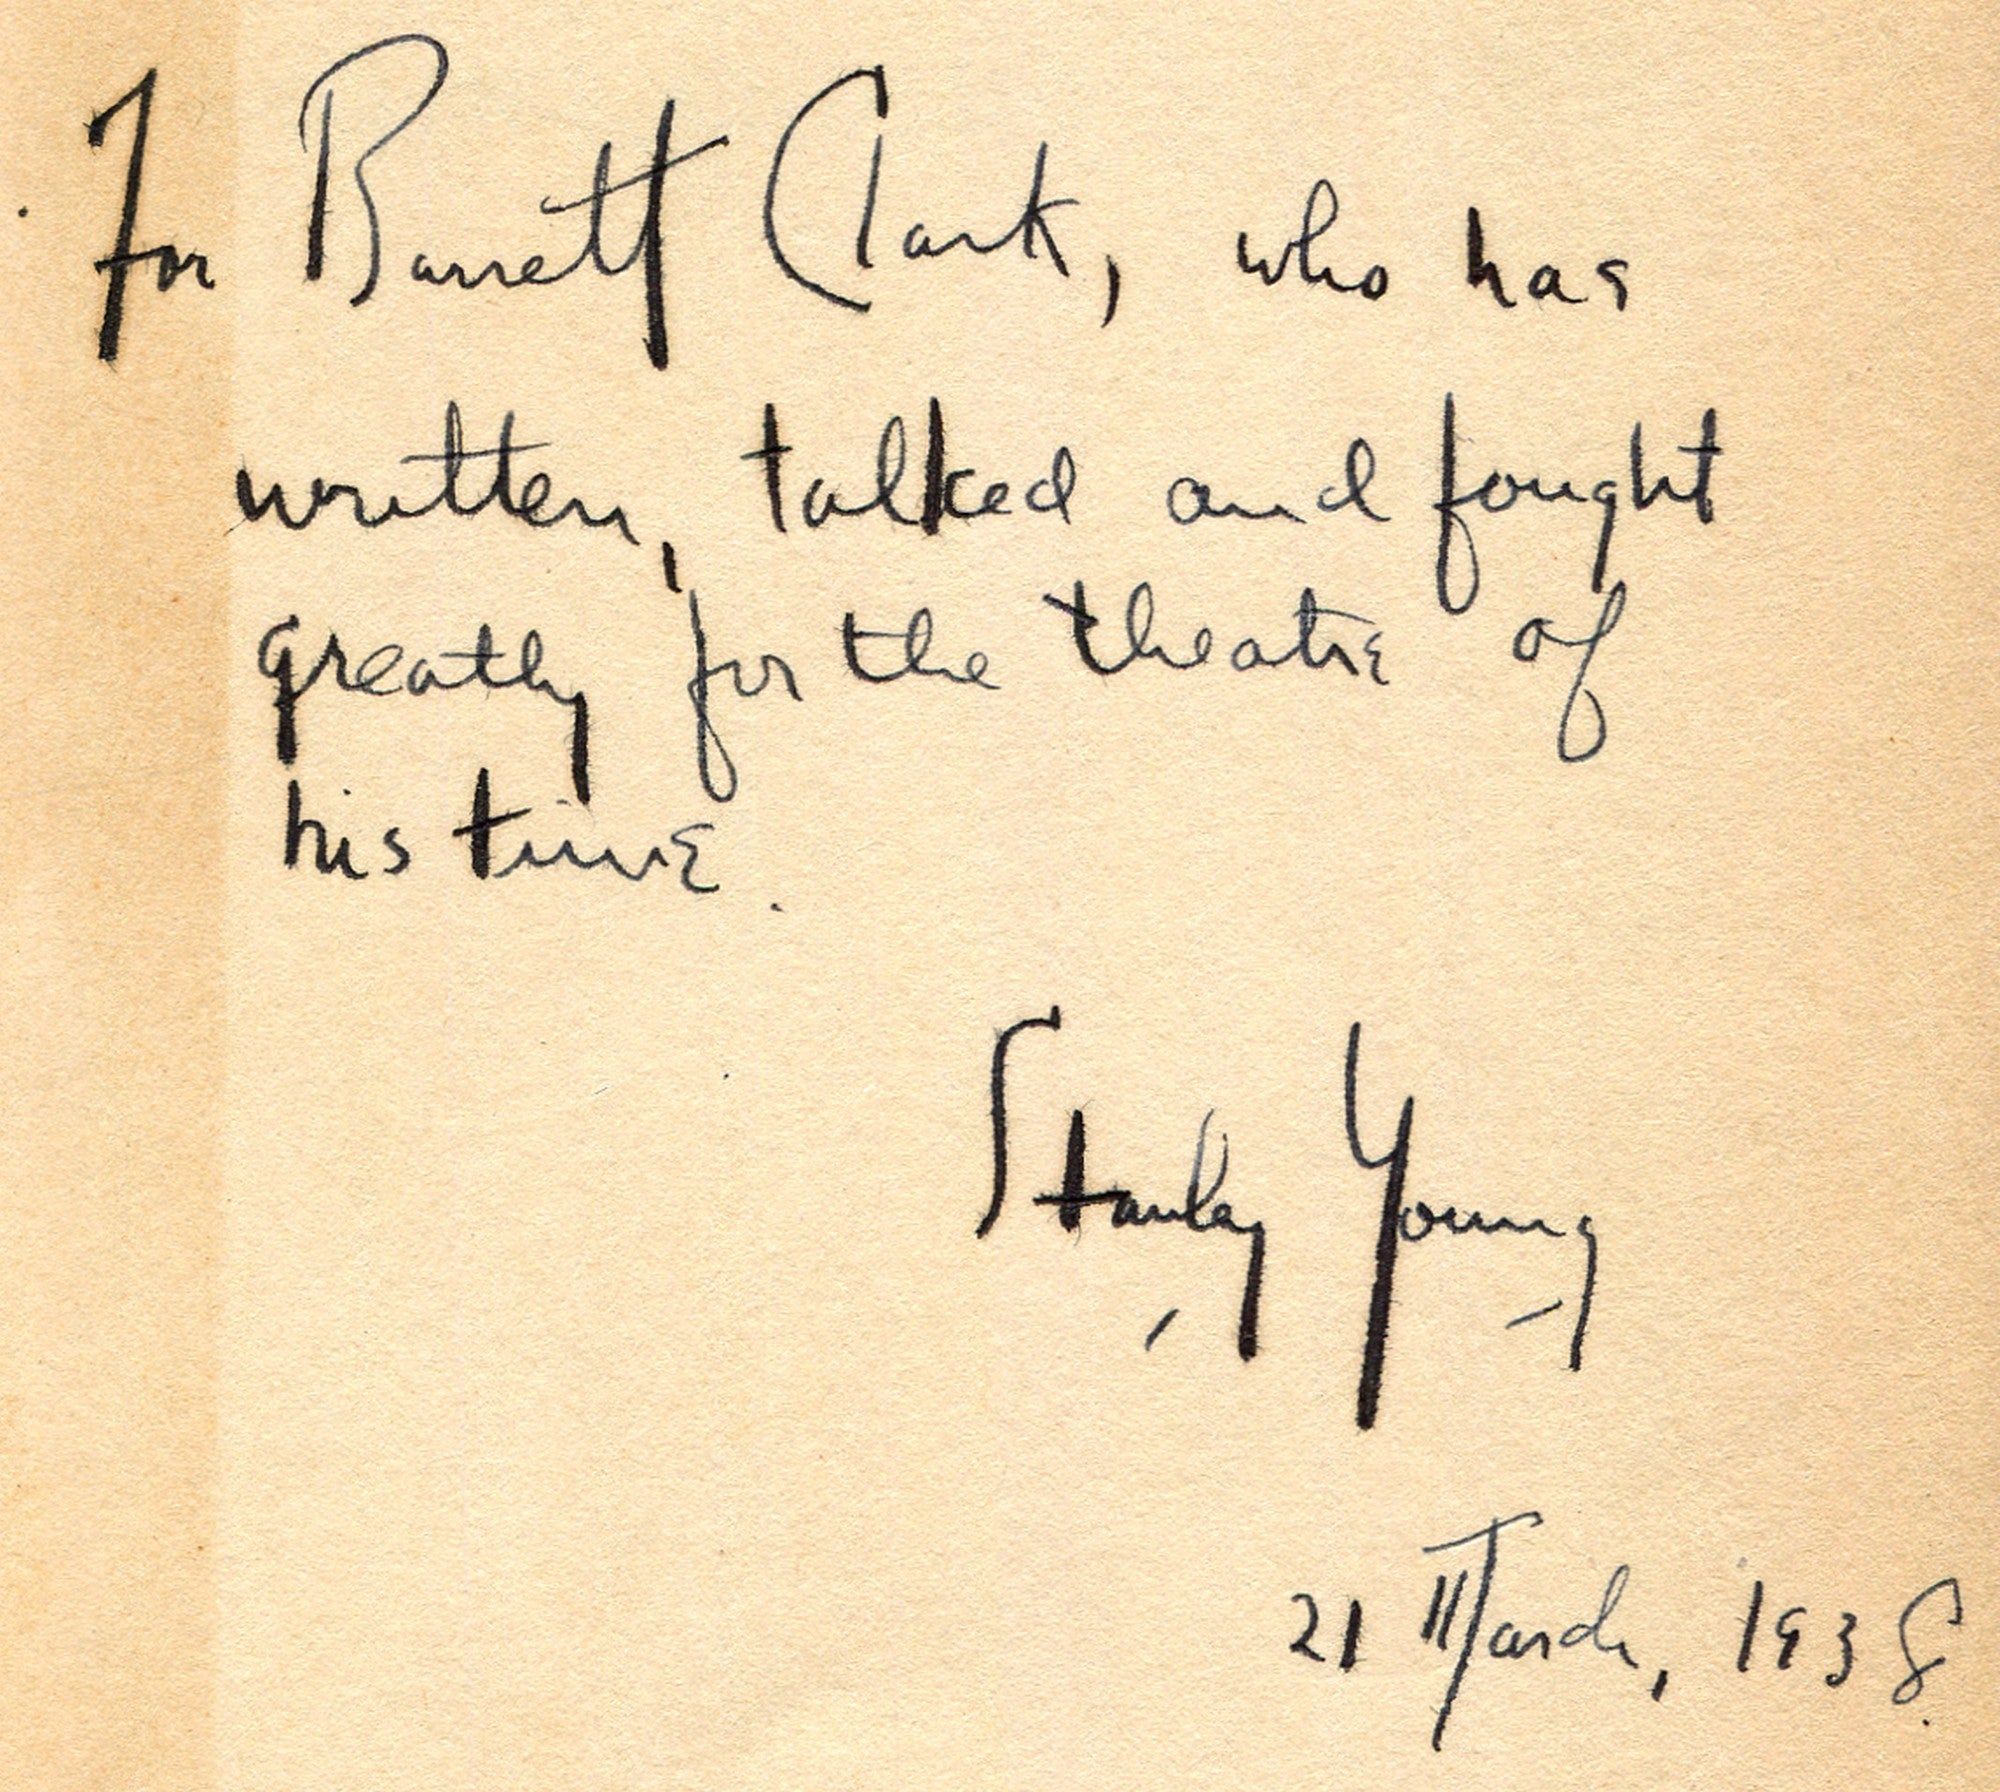 For Barrett Clark, who has
written, talked and fought
greatly for the theatre of
his time.
Stanley Young
21 March, 1938.